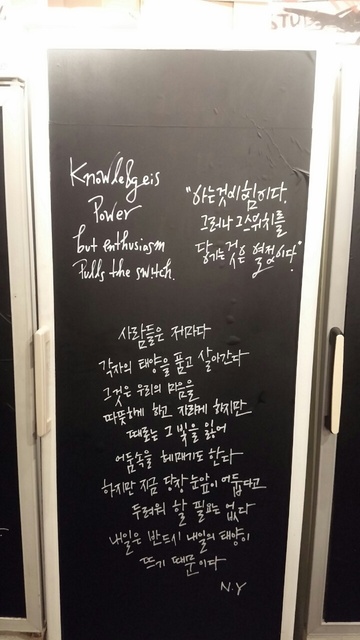 Knowledgeis
Power
but enthusiasm
Pulls the switch.
"아는것이힘이다.
그러나 그스위치를
당기는것은 열정이다"
사람들은 저마다
각자의 태양을 품고 살아간다
그것은 우리의 마음을
따뜻하게 하고 자라게 하지만
때로는 그 빛을 잃어
어둠속을 헤매기도 한다
하지만 지금 당장 눈앞이 어둡다고
두려워 할 필요는 없다
내일은 반드시 내일의 태양이
뜨기 때문이다
N.Y